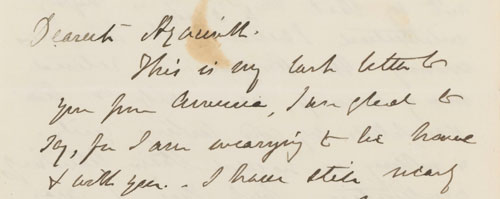 Dearest Hyacinth.
This is my last letter to
you from America, I am glad to
say, for I am wearying to be home
& with you. - I have still nearly